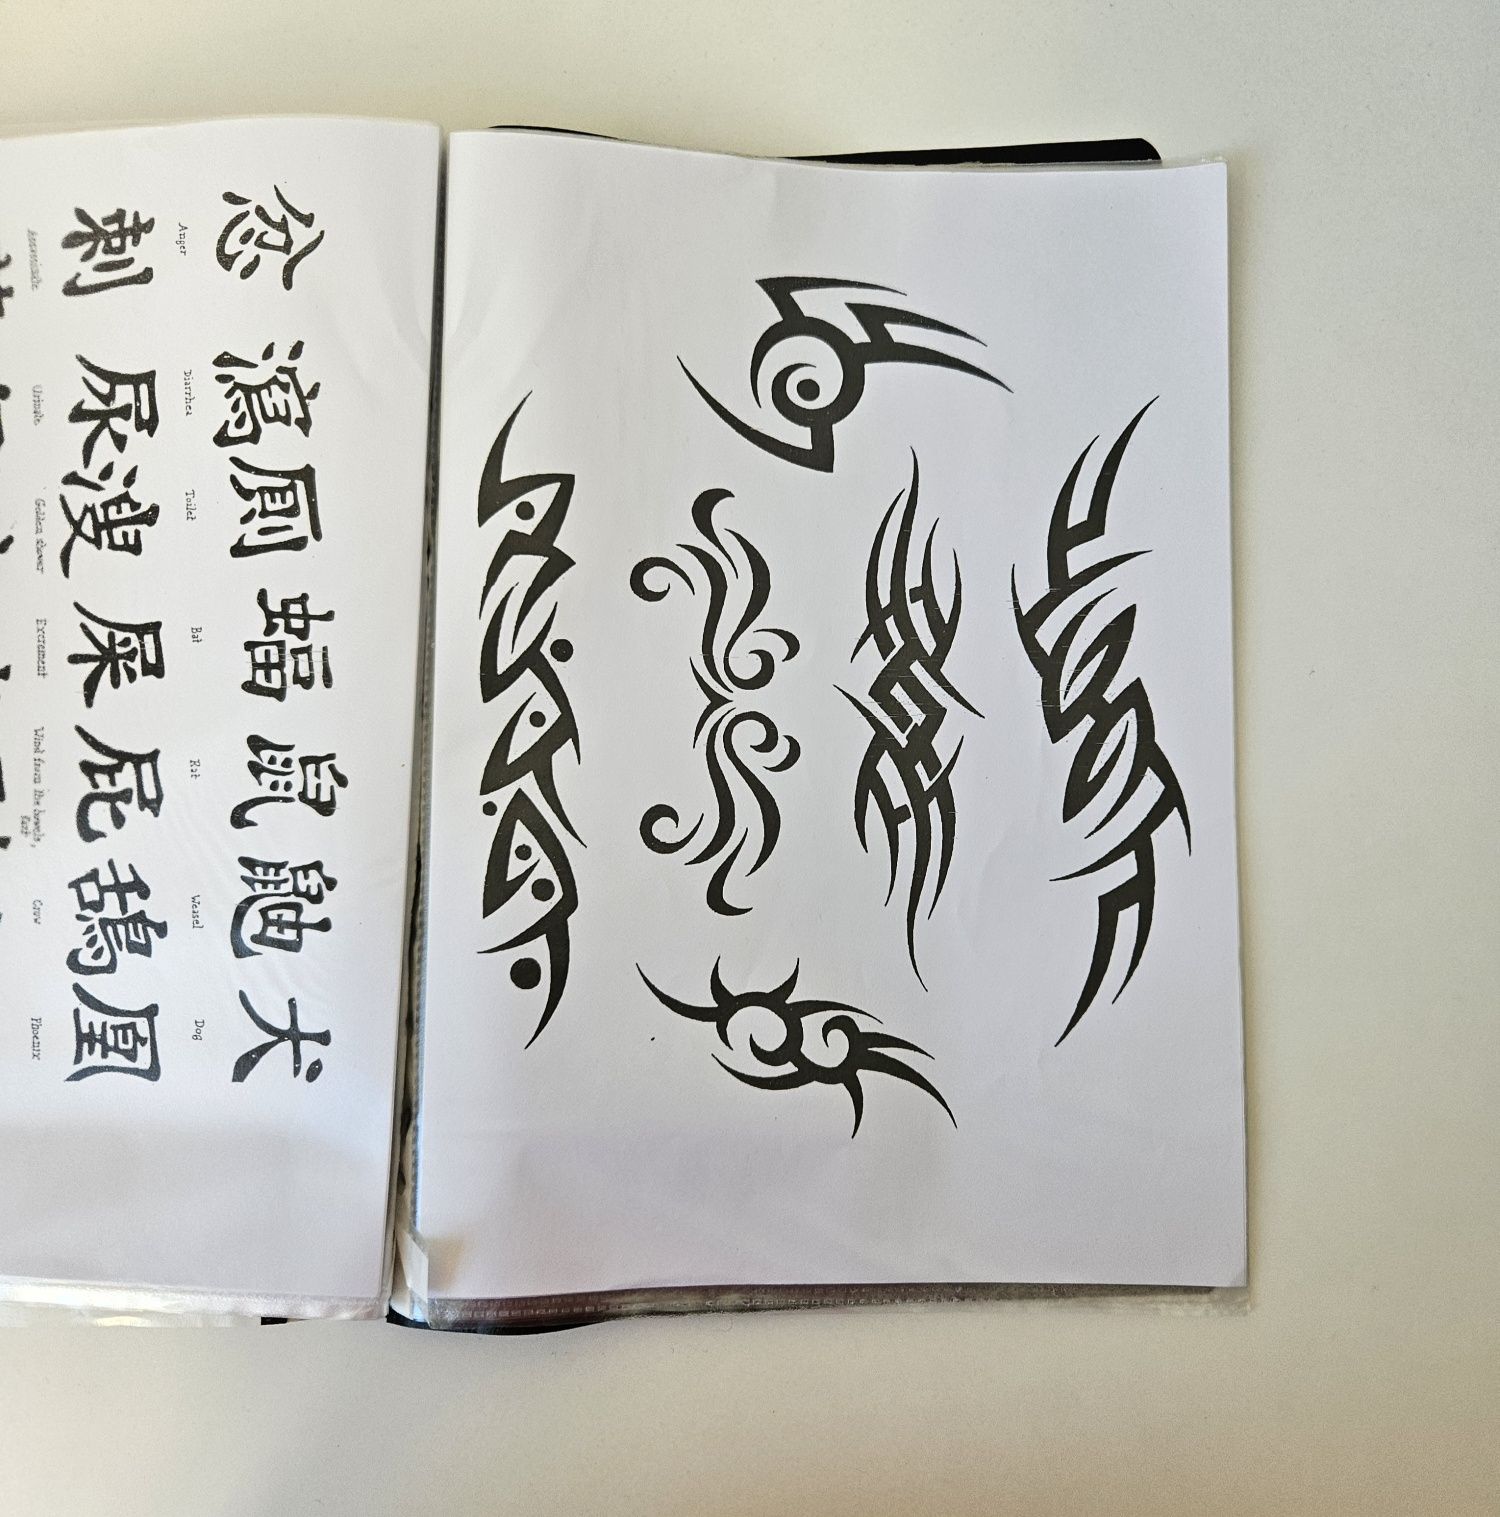 忿 瀉 厠 蝠 鼠 鼬 犬
Anger Diarrhea Toilet Bat Rat Weasel Dog
刺 尿 溲 屎 屁 鴰 凰
Assassinate Urinate Golden shower Excrement Wind from the bowels, Crow Phoenix
fart